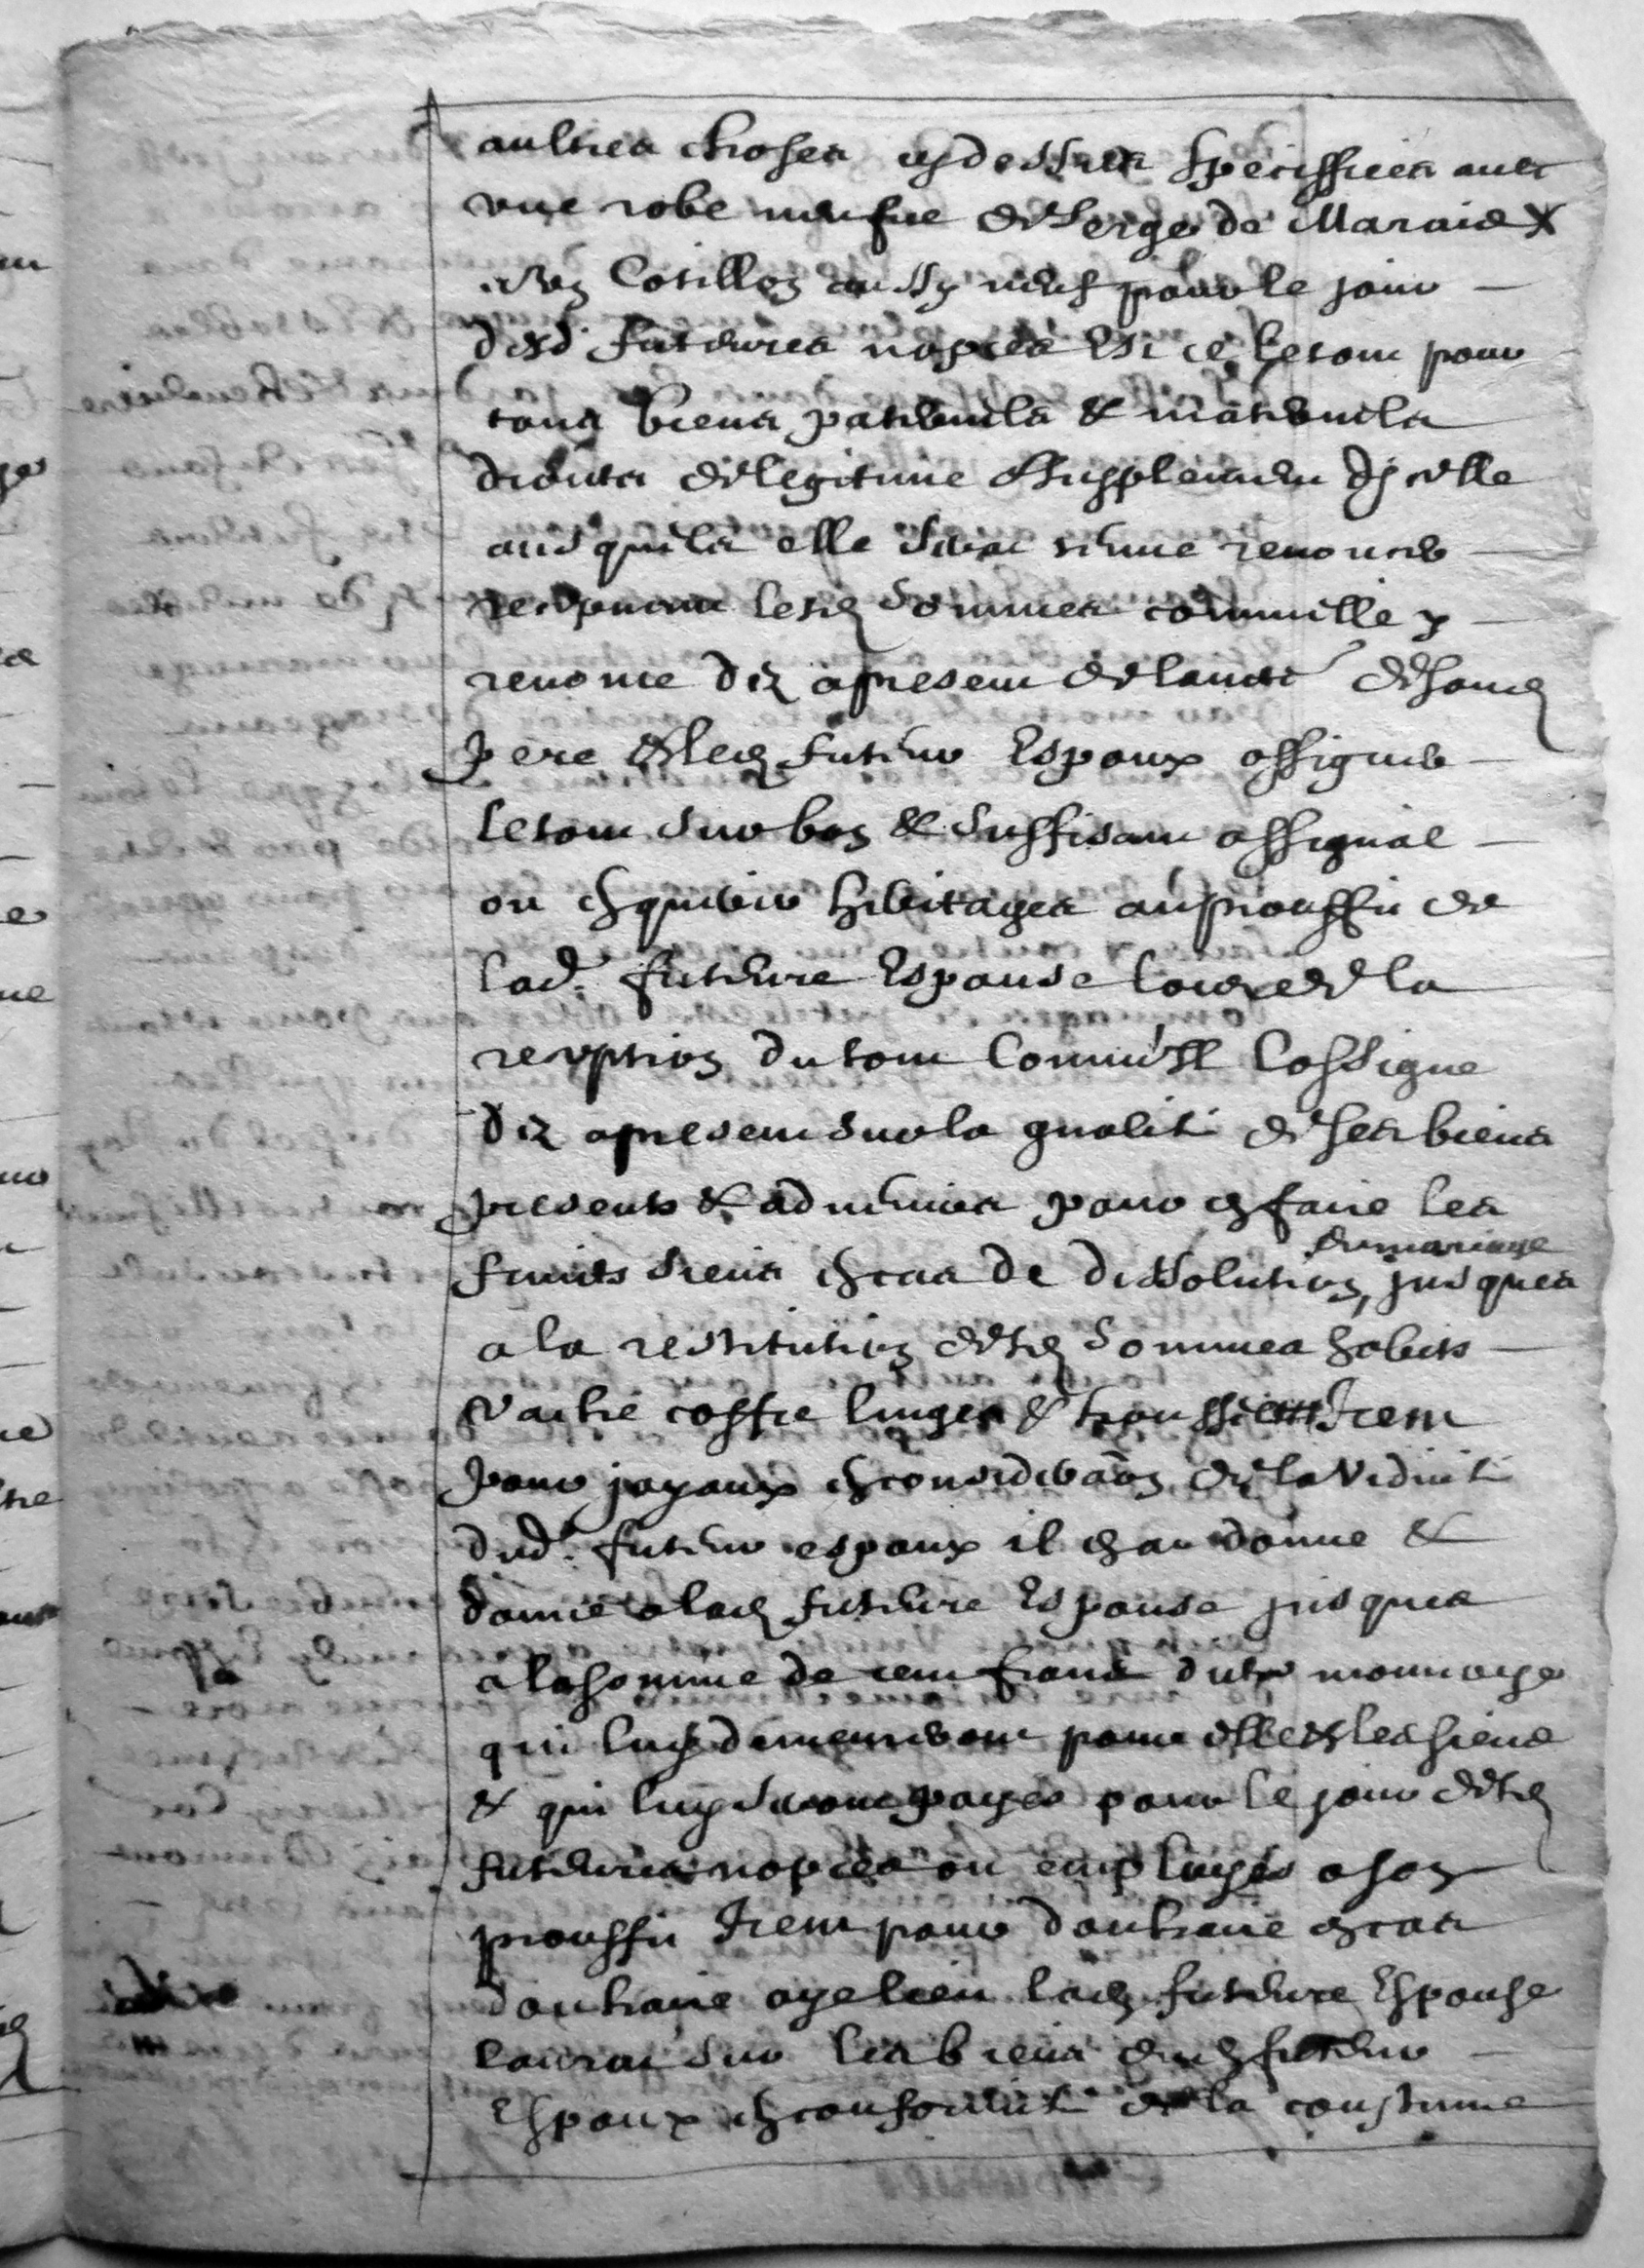 aultres choses cydessus speciffiées avec
une robe neufve de serge de Marais X
un Cotillon aussy neuf pour le jour
desd. futeures nopces Et ce le tout pour
tous biens paternels & maternels
droits de legitime & supplement d'jcelle
ausquels elle sera tenue renoncer
recepvant lesd sommes comm'elle y
renonce dez apresent de lauctté de sond
pere & led futeur Espoux assigner
le tout sur bon & suffisant assignal
ou en acquerir heritages au prouffit de
lad. futeure Espouse lors de la
reception du tout Comm'Il L'assigne
dez apresent sur la qualité de ses biens
presents & advenirs pour en faire les
fruits siens en cas de dissolution, du mariage jusques
a la restitution desd sommes habits
& aultre coffre linges & troussel Item
pour joyaux en consideraon de la Viduité
dud. futeur espoux il en a donné &
donne a lad futeure Espouse jusques
a la somme de cent frans dite monnoye
qui luy demeureront pour elle & les siens
& qui luy seront payes pour le jour desd
futeures nopces ou employés a son
prouffit Item pour douhaire en cas
douhaire aye lieu lad futeure Espouse
l'aurat sur les biens dud futeur
Espoux en conformité de la coustume